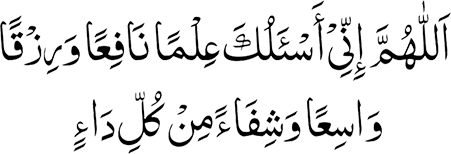 اَللّٰهُمَّ إِنِّيْ أَسْئَلُكَ عِلْمًا نَافِعًا وَرِزْقًا
وَاسِعًا وَشِفَاءً مِنْ كُلِّ دَاءٍ